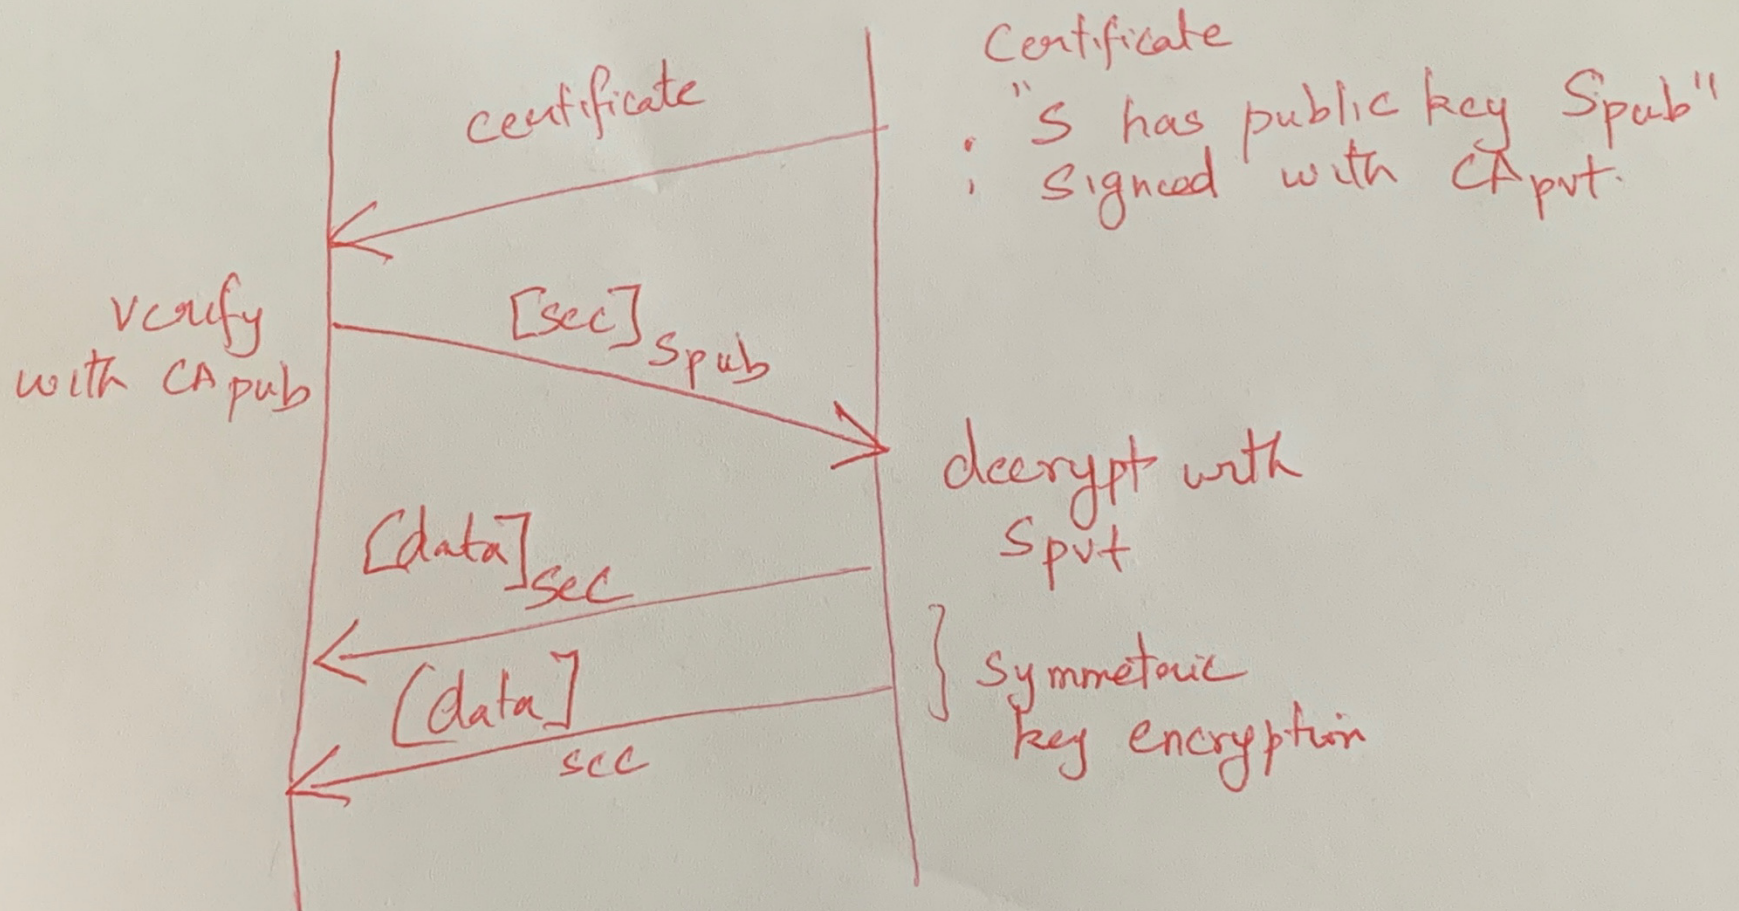 certificate
Certificate
"S has public key Spub"
: signed with CApvt.
verify
with CApub
[sec]Spub
decrypt with
Spvt
[data]sec
[data]sec
} symmetric
key encryption